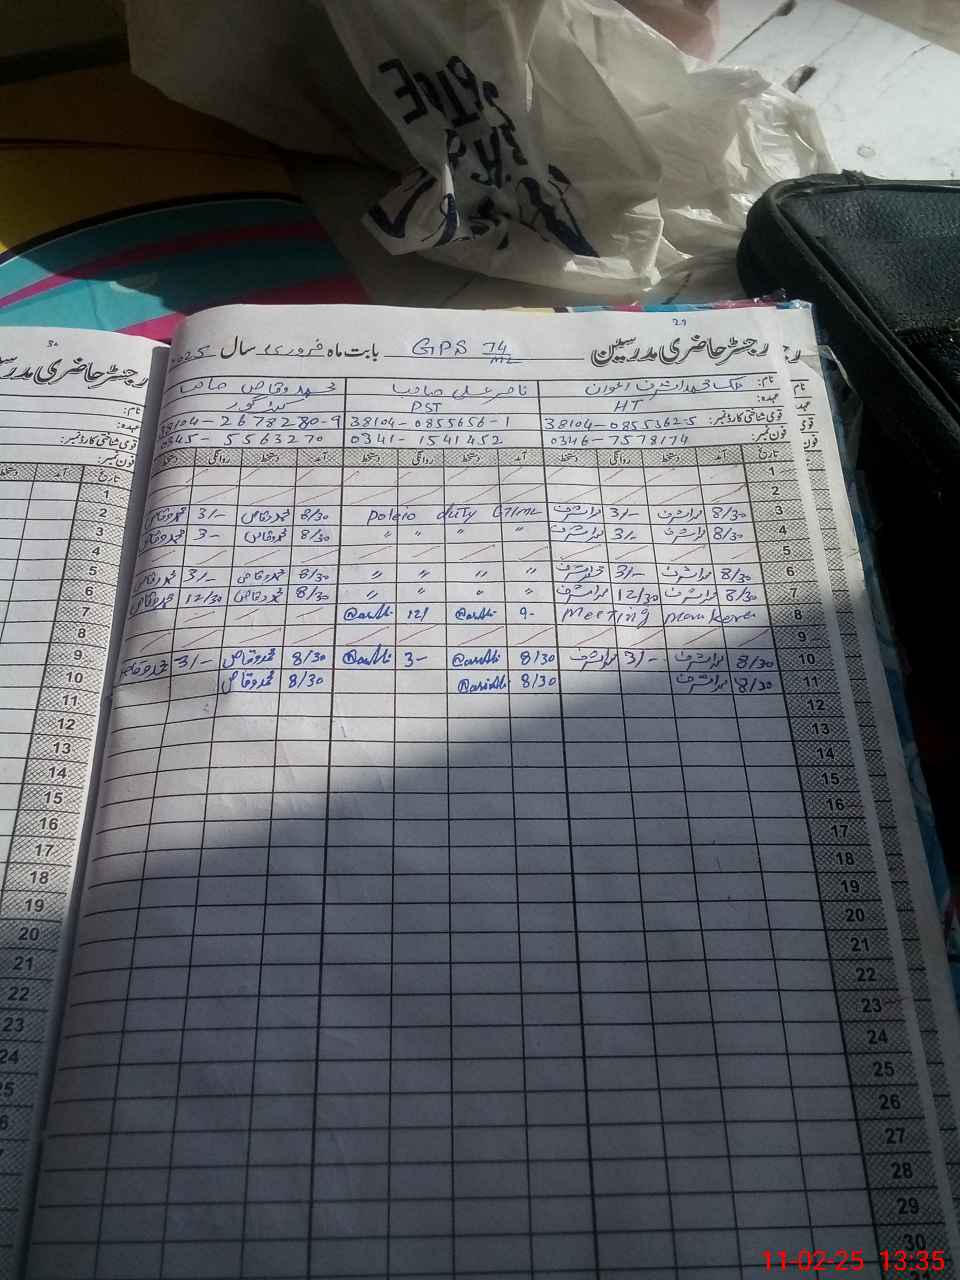 29
رجسٹر حاضری مدرسین GPS 74/ML بابت ماہ فروری سال 2025
نام: ملک محمد اشرف اعوان ناصر علی صاحب محمد وقاص صاحب
عہدہ: HT PST
قومی شناختی کارڈ نمبر: 38104-0855362-5 38104-0855656-1 38104-2678280-9
فون نمبر: 0346-7578174 0341-1541452 0345-5563270
تاریخ آمد دستخط روانگی دستخط آمد دستخط روانگی دستخط آمد دستخط روانگی دستخط
1
2
3 8/30 محمد اشرف 3/- محمد اشرف Poleio duty 8/30 محمد وقاص 3/- محمد وقاص
4 8/30 محمد اشرف 3/- محمد اشرف " " " " 8/30 محمد وقاص 3- محمد وقاص
5
6 8/30 محمد اشرف 3/- محمد اشرف " " " " 8/30 محمد وقاص 3/- محمد وقاص
7 8/30 محمد اشرف 12/30 محمد اشرف " " " " 8/30 محمد وقاص 12/30 محمد وقاص
8 Meeting mankera 9- 12/
9
10 8/30 محمد اشرف 3/- محمد اشرف 8/30 3- 8/30 محمد وقاص 3/- محمد وقاص
11 8/30 محمد اشرف 8/30 8/30 محمد وقاص
12
13
14
15
16
17
18
19
20
21
22
23
24
25
26
27
28
29
30
رجسٹر حاضری مدرسین
نام:
عہدہ:
قومی شناختی کارڈ نمبر:
فون نمبر:
تاریخ آمد دستخط
1
2
3
4
5
6
7
8
9
10
11
12
13
14
15
16
17
18
19
20
21
22
23
24
11-02-25 13:35